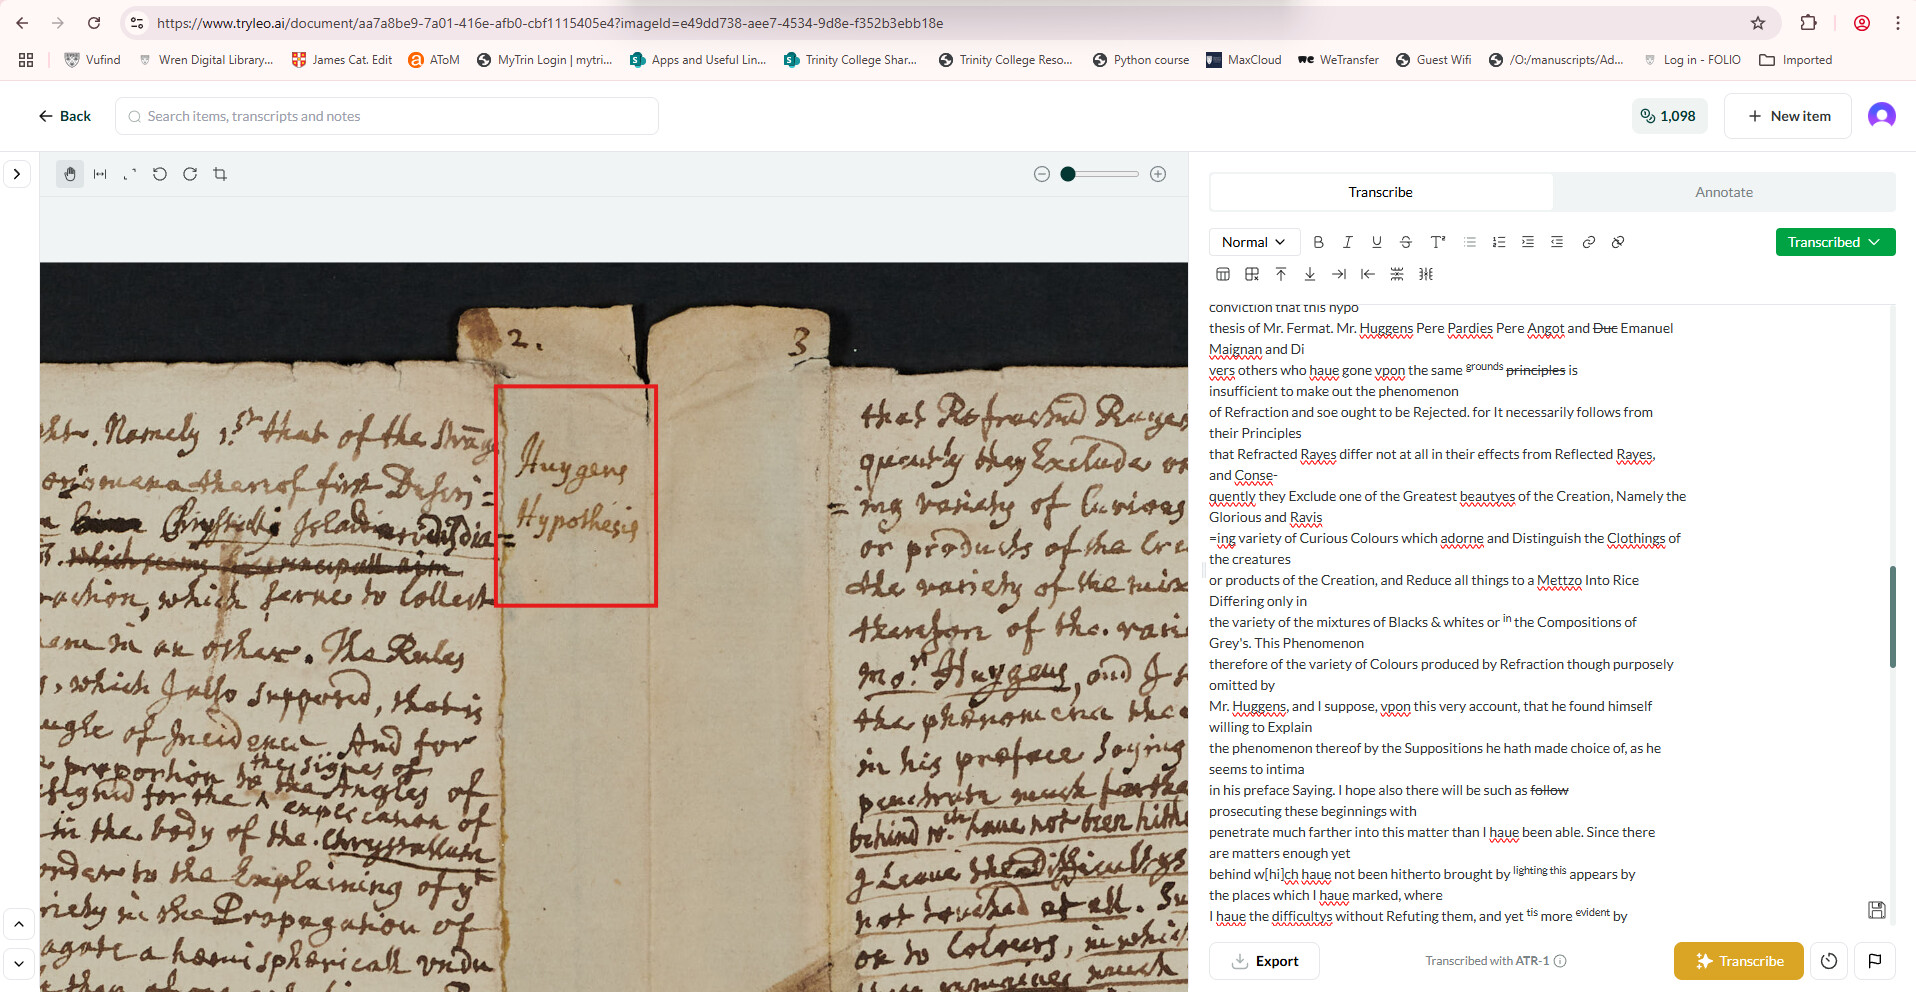 https://www.tryleo.ai/document/aa7a8be9-7a01-416e-afb0-cbf1115405e4?imageId=e49dd738-aee7-4534-9d8e-f352b3ebb18e
Vufind
Wren Digital Library...
James Cat. Edit
AToM
MyTrin Login | mytri...
Apps and Useful Lin...
Trinity College Shar...
Trinity College Reso...
Python course
MaxCloud
WeTransfer
Guest Wifi
/O:/manuscripts/Ad...
Log in - FOLIO
Imported
Back
Search items, transcripts and notes
1,098
New item
2.
3
Huygens
Hypothesis
Namely 1.st that of the Strang
thereof first Descri=
which seems the principall aim
which serue to Collect
in an other. The Rules
, which I also supposed, that is
of Incidence. And for
proportion
the signes of
the Angles of
for the
in the body of the Chrystallum
order to the Explaining of yt
in the Propagation of
a hemisphericall vndu
that Refracted Rayes
quently they Exclude on
=ing variety of Curious
or products of the Cre
the variety of the mix
therefore of the vari
Mr. Huygens, and I s
the phenomena the
in his preface Saying
penetrate much farthe
behind wch haue not been hithe
I Leaue the difficultys
not touched at all. Su
or to Colours, in which
remaines much
Transcribe
Annotate
Normal
Transcribed
conviction that this hypo
thesis of Mr. Fermat. Mr. Huggens Pere Pardies Pere Angot and Duc Emanuel
Maignan and Di
vers others who haue gone vpon the same grounds principles is
insufficient to make out the phenomenon
of Refraction and soe ought to be Rejected. for It necessarily follows from
their Principles
that Refracted Rayes differ not at all in their effects from Reflected Rayes,
and Conse-
quently they Exclude one of the Greatest beautyes of the Creation, Namely the
Glorious and Ravis
=ing variety of Curious Colours which adorne and Distinguish the Clothings of
the creatures
or products of the Creation, and Reduce all things to a Mettzo Into Rice
Differing only in
the variety of the mixtures of Blacks & whites or in the Compositions of
Grey's. This Phenomenon
therefore of the variety of Colours produced by Refraction though purposely
omitted by
Mr. Huggens, and I suppose, vpon this very account, that he found himself
willing to Explain
the phenomenon thereof by the Suppositions he hath made choice of, as he
seems to intima
in his preface Saying. I hope also there will be such as follow
prosecuting these beginnings with
penetrate much farther into this matter than I haue been able. Since there
are matters enough yet
behind w[hi]ch haue not been hitherto brought by lighting this appears by
the places which I haue marked, where
I haue the difficultys without Refuting them, and yet tis more evident by
Export
Transcribed with ATR-1
Transcribe